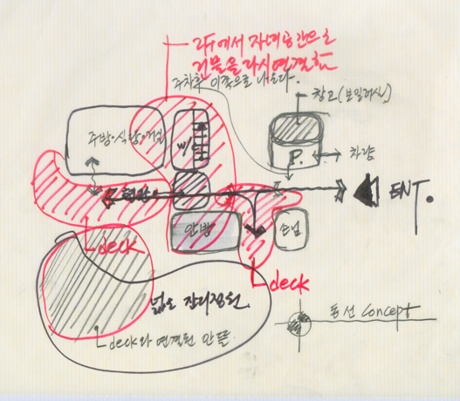 2F에서 자녀공간으로
건물을 다시 연결함
주차후 이쪽으로 나온다.
창고(보일러실)
주방·식당·거실
W/C
P.
차량
현관
ENT.
안방
손님
deck
deck
넓은 잔디정원
deck와 연결된 안뜰
동선 Concept